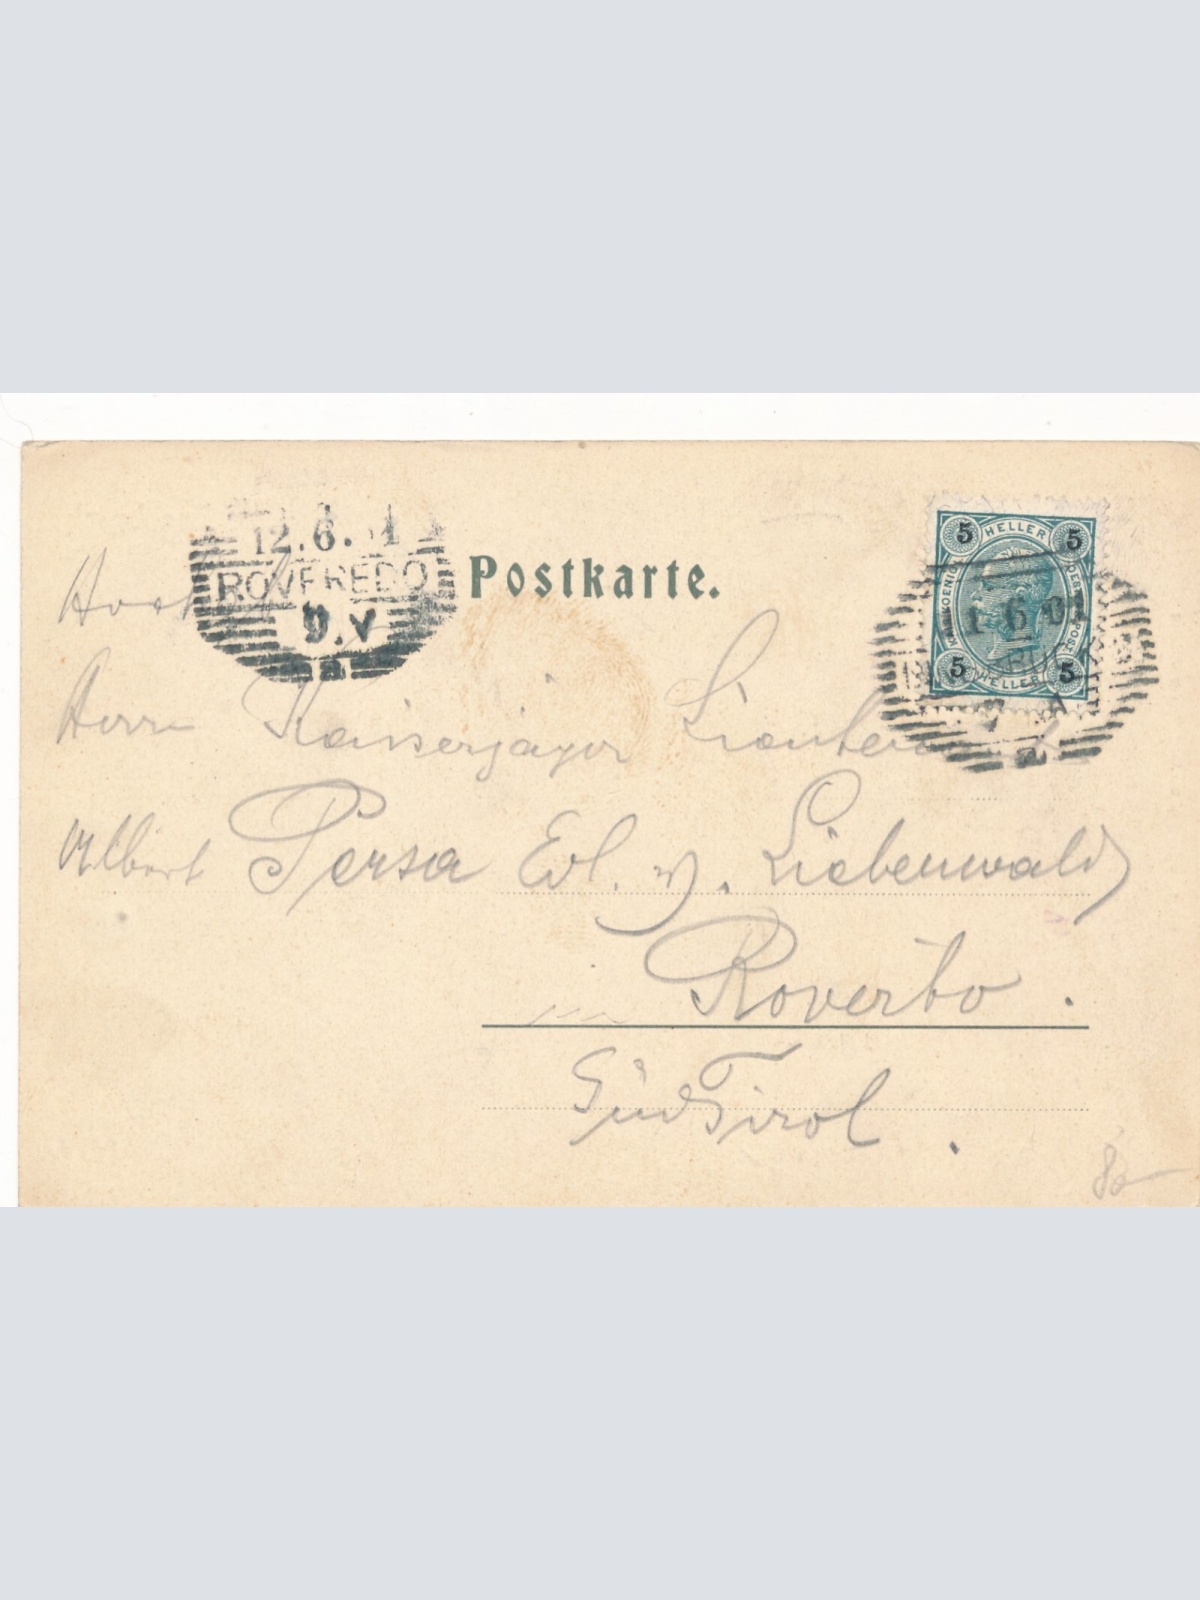 12.6.01
ROVEREDO
9.V
a
Postkarte.
5 HELLER 5
5 HELLER 5
1 6 0
Herrn Kaiserjäger Lieutenant
Albert Persa Edl. v. Liebenwald
Roverto.
Süd Tirol.
80